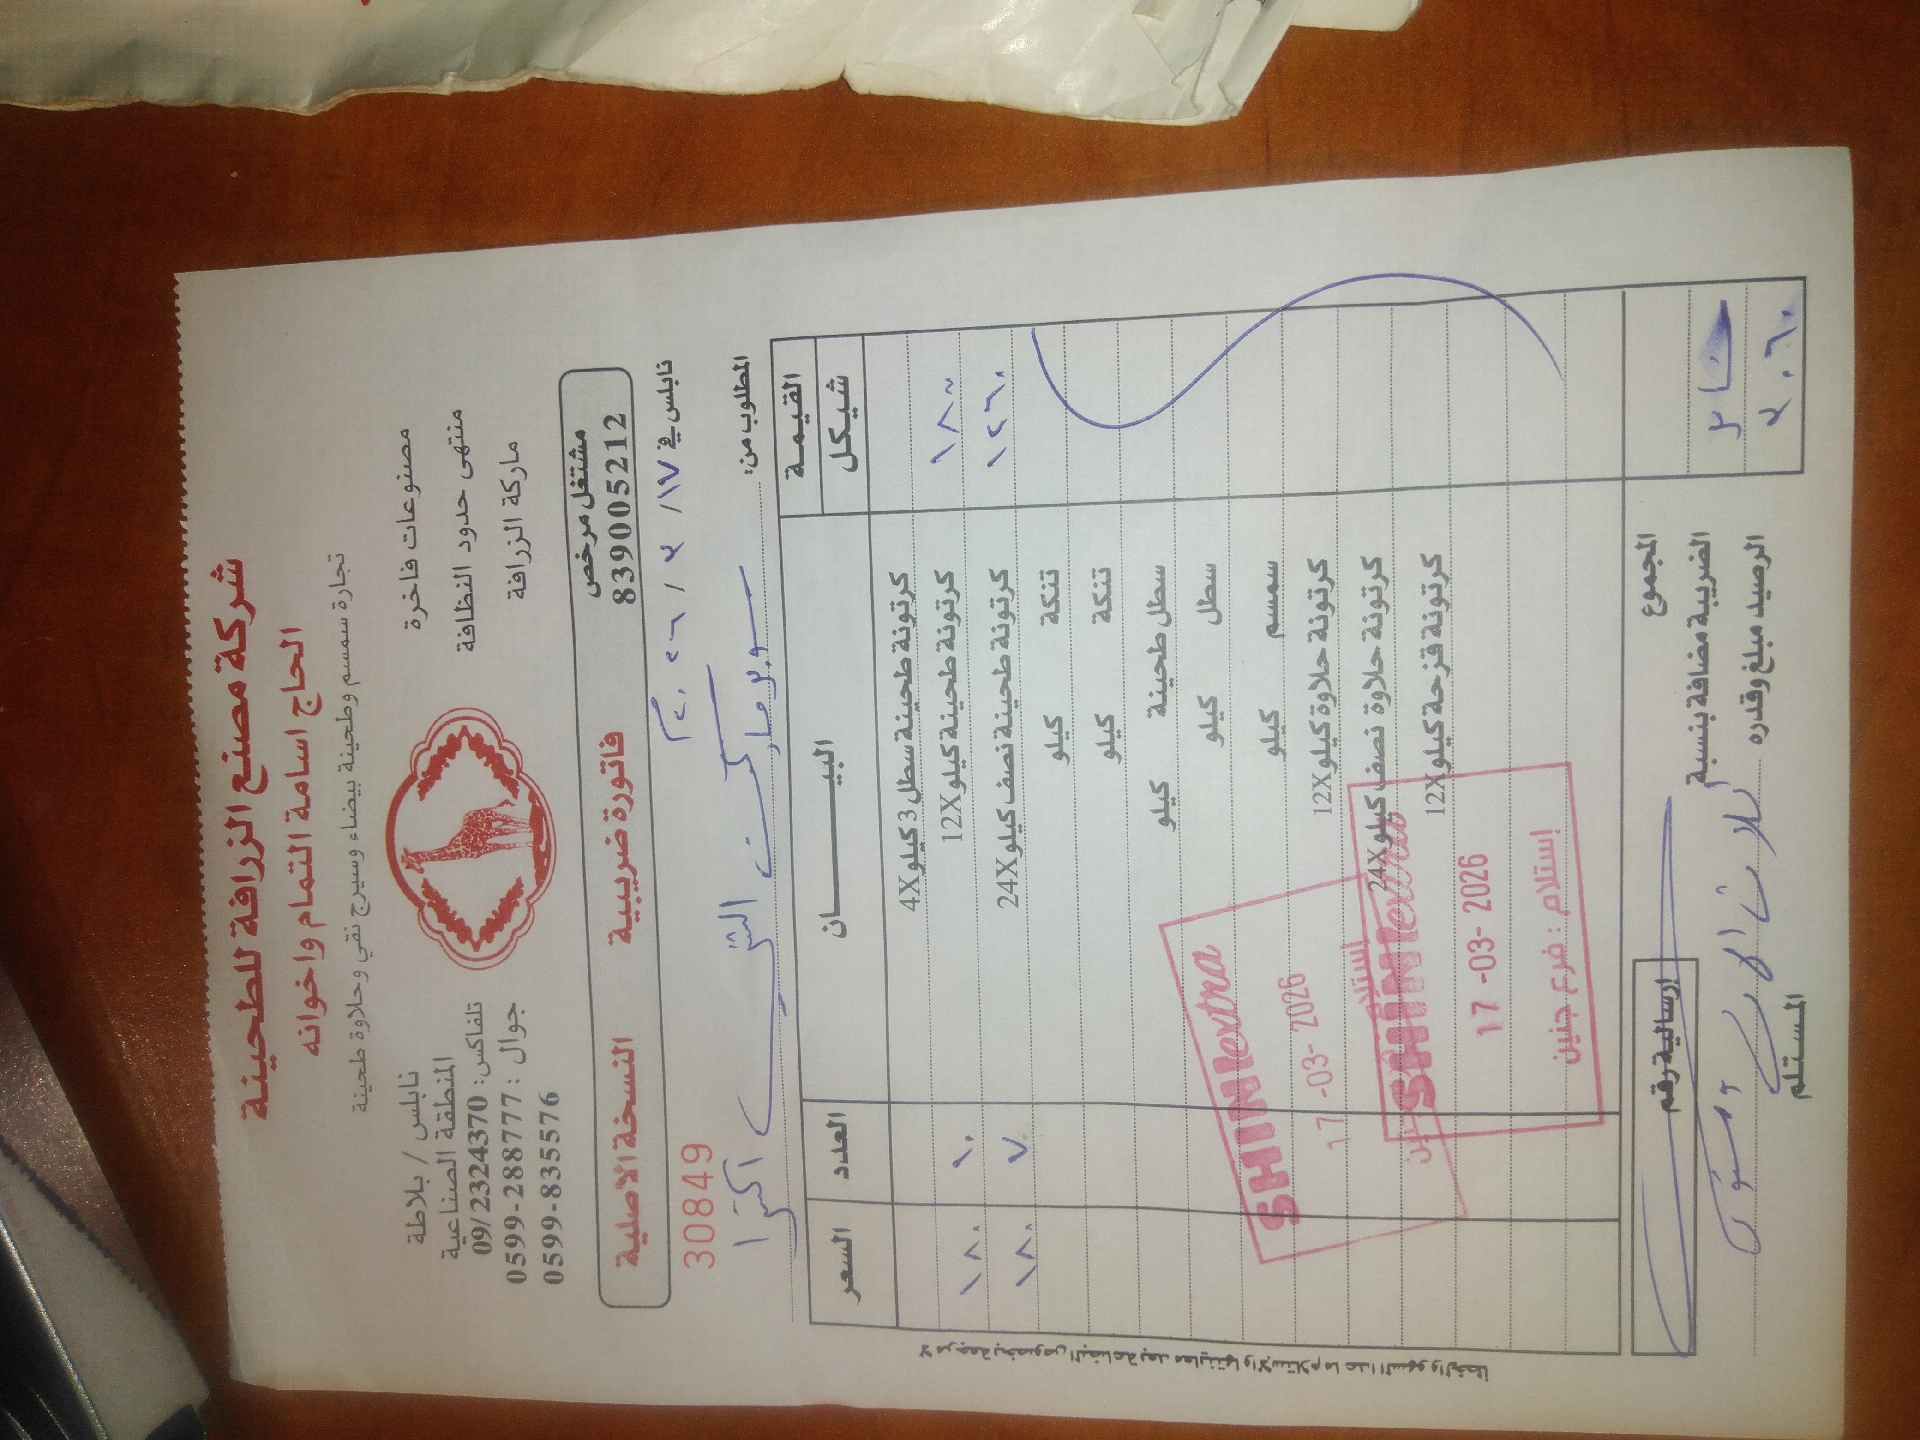 شركة مصنع الزرافة للطحينة
الحاج اسامة التمام واخوانه
تجارة سمسم وطحينة بيضاء وسيرج نقي وحلاوة طحينة
مصنوعات فاخرة
منتهى حدود النظافة
ماركة الزرافة
نابلس / بلاطة
المنطقة الصناعية
تلفاكس: 09/2324370
جوال : 0599-288777
0599-835576
مشتغل مرخص
839005212
فاتورة ضريبية
النسخة الاصلية
نابلس في ١٧ / ٣ / ٢٠٢٦
30849
المطلوب من: سوبر ماركت الشني اكسترا
القيمة البيــــــــان العدد السعر
شيكل
كرتونة طحينة سطل 3 كيلو 4X
١٨٠٠ كرتونة طحينة كيلو 12X ١٠ ١٨٠
١٢٦٠ كرتونة طحينة نصف كيلو 24X ٧ ١٨٠
تنكة كيلو
تنكة كيلو
سطل طحينة كيلو
سطل كيلو
سمسم كيلو
كرتونة حلاوة كيلو 12X
كرتونة حلاوة نصف كيلو 24X
كرتونة قزحة كيلو 12X
SHINIextra
17 -03- 2026
إستلام
جنين
SHINIextra
17 -03- 2026
إستلام : فرع جنين
المجموع
الضريبة مضافة بنسبة
الرصيد مبلغ وقدره ٣٠٦٠
ارسالية رقم
المستلم
لا مرجعة بخصوص البضاعة بعد معاينتها والاستلام ما عدا السهو والخطأ